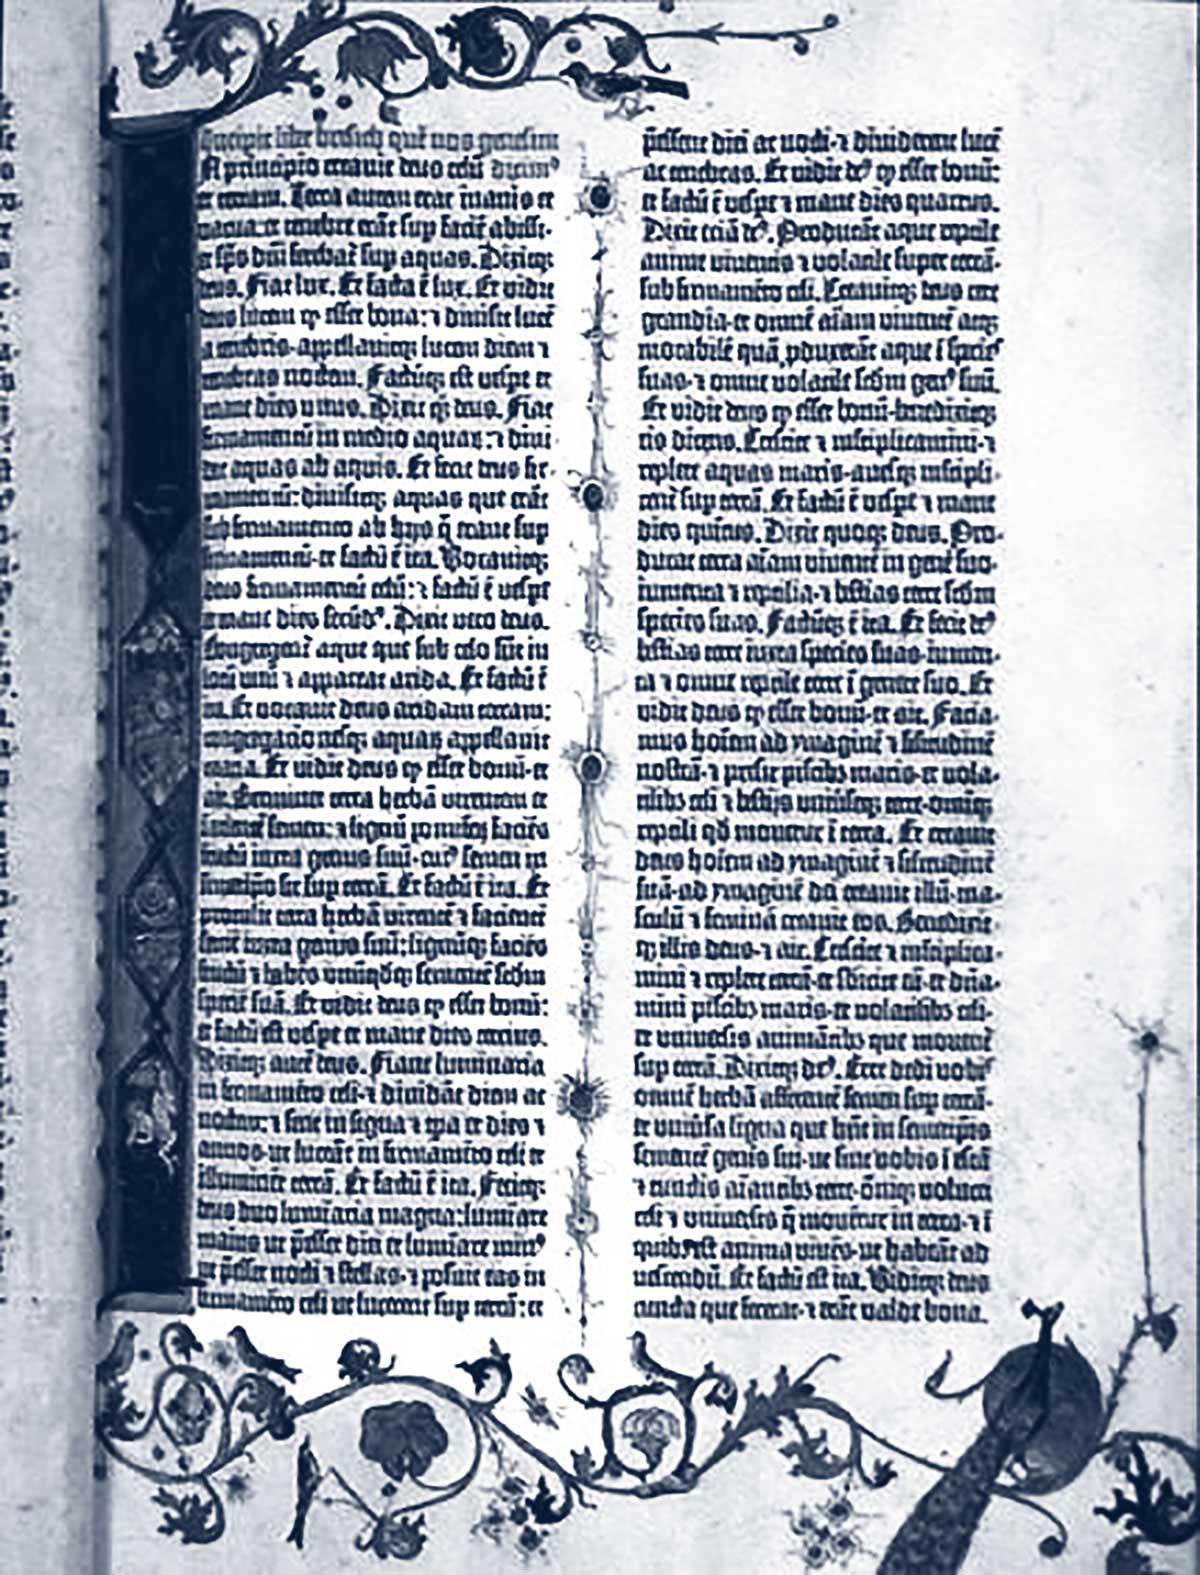 Incipit liber bresich quē nos genesim
A principio creauit deus celū dicimꝰ
et terram. Terra autem erat inanis et
vacua: et tenebre erāt sup faciē abissi:
et spūs dn̄i ferebaꞇ̄ sup aquas. Dixitqꝫ
deus. Fiat lux. Et facta ē lux. Et vidit
deus lucem ꝙ esset bona: ⁊ diuisit lucē
a tenebris·appellauitqꝫ lucem diem ⁊
tenebras noctem. Factūqꝫ est vespe et
mane dies vnus. Dixit qꝫ deus. Fiat
firmamentū in medio aquaꝝ: ⁊ diui-
dat aquas ab aquis. Et fecit deus fir-
mamentū: diuisitqꝫ aquas que erāt
sub firmamento ab hijs q̄ erant sup
firmamentū: et factū ē ita. Vocauitqꝫ
deus firmamentū celū: ⁊ factū ē vespe
et mane dies secūdꝰ. Dixit vero deus.
Congregenꞇ̄ aque que sub celo sūt in
locū vnū ⁊ appareat arida. Et factū ē
ita. Et vocauit deus aridam terram:
congregacōnesqꝫ aquaꝝ appellauit
maria. Et vidit deus ꝙ esset bonū·et
ait. Germinet terra herbā virentem et
facientē semen: ⁊ lignū pomiferū faciēs
fructū iuxta genus suū·cuiꝰ semen in
semetipo sit sup terrā. Et factū ē ita. Et
protulit terra herbā virentē ⁊ facientē
semē iuxta genus suū: lignūqꝫ faciēs
fructū ⁊ habēs vnūqdqꝫ sementē scdm
speciē suā. Et vidit deus ꝙ esset bonū:
et factū est vespe et mane dies tercius.
Dixitqꝫ autē deus. Fiant luminaria
in firmamēto celi·⁊ diuidāt diem ac
noctem: ⁊ sint in signa ⁊ tpa et dies ⁊
annos·ut luceāt in firmamēto celi et
illuminēt terrā. Et factū ē ita. Fecitqꝫ
deus duo luminaria magna: luminare
maius ut p̄esset diei et luminare minꝰ
ut p̄esset nocti ⁊ stellas·⁊ posuit eas in
firmamēto celi ut lucerent sup terrā: et
p̄essent diei ac nocti·⁊ diuiderent lucē
ac tenebras. Et vidit deꝰ ꝙ esset bonū:
et factū ē vespe ⁊ mane dies quartus.
Dixit eciā deꝰ. Producāt aque reptile
anime viuentis ⁊ volatile super terrā·
sub firmamēto celi. Creauitqꝫ deus cete
grandia·et omnē aīam viuentē atqꝫ
motabilē quā ꝓduxerāt aque ī species
suas·⁊ omne volatile scdm genꝰ suū.
Et vidit deus ꝙ esset bonū·benedixitqꝫ
eis dicens. Crescite ⁊ multiplicamini·⁊
replete aquas maris·auesqꝫ multipli-
cenꞇ̄ sup terrā. Et factū ē vespe ⁊ mane
dies quintus. Dixit quoqꝫ deus. Pro-
ducat terra aīam viuentē in genē suo·
iumenta ⁊ reptilia·⁊ bestias terre scdm
species suas. Factūqꝫ ē ita. Et fecit deꝰ
bestias terre iuxta species suas·iumen-
ta ⁊ omne reptile terre ī genere suo. Et
vidit deus ꝙ esset bonū·et ait. Facia-
mus hoīem ad ymaginē ⁊ similitudinē
nostrā·⁊ presit piscibꝫ maris·et vola-
tilibꝫ celi ⁊ bestijs vniūseqꝫ terre·omniqꝫ
reptili qd mouetur ī terra. Et creauit
deus hoīem ad ymaginē ⁊ similitudinē
suā·ad ymaginē dei creauit illū·ma-
sculū ⁊ feminā creauit eos. Benedixit-
qꝫ illis deus·⁊ ait. Crescite ⁊ multiplica-
mini ⁊ replete terrā·et subicite eā·et dn̄a-
mini piscibꝫ maris·et volatilibꝫ celi·
et vniuersis animātibꝫ que mouenꞇ̄
sup terrā. Dixitqꝫ deꝰ. Ecce dedi vobis
omnē herbā afferentē semen sup terrā·
et vniūsa ligna que hn̄t in semetipis
sementē genis sui·ut sint vobis ī escā
⁊ cunctis aīantibꝫ terre·om̄iqꝫ volucri
celi ⁊ vniuersis q̄ mouenꞇ̄ in terra·⁊ ī
quibꝫ est anima viuēs·ut habeāt ad
vescendū. Et factū est ita. Viditqꝫ deus
cuncta que fecerat·⁊ erāt valde bona.